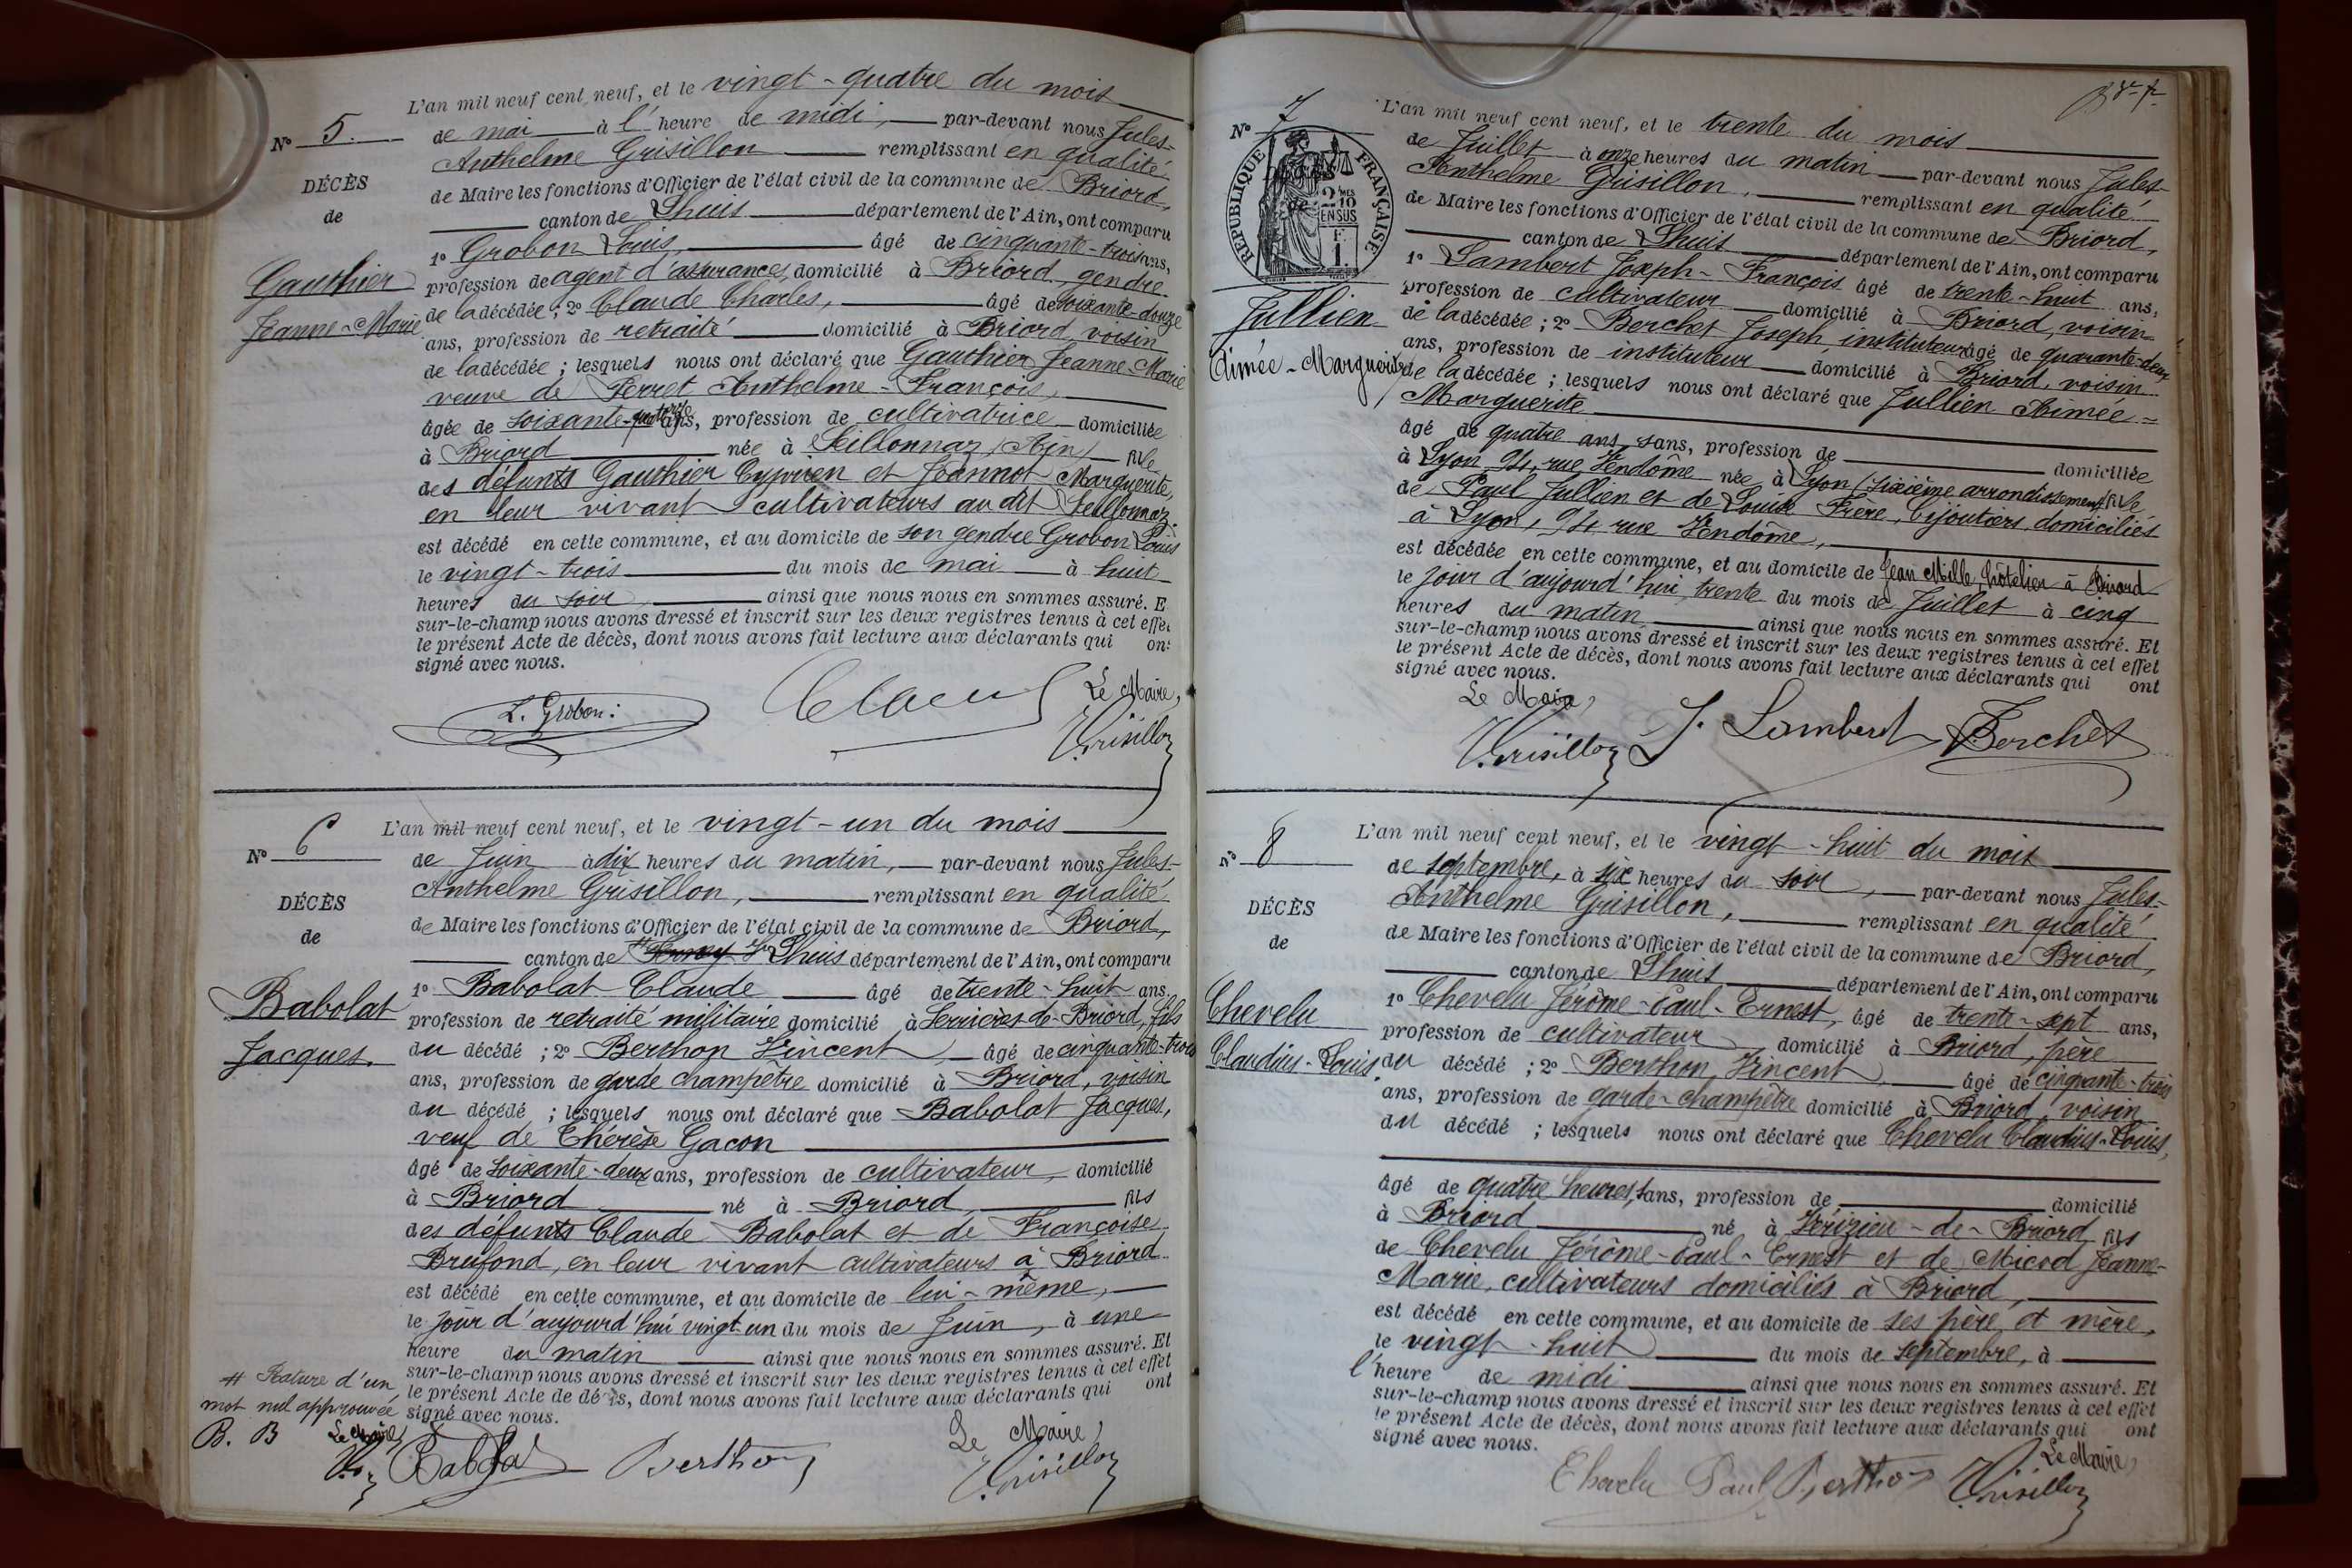 L'an mil neuf cent neuf, et le vingt-quatre du mois
N° 5. de mai à l'heure de midi, par-devant nous Jules-
Anthelme Grisillon remplissant en qualité
DÉCÈS
de Maire les fonctions d'Officier de l'état civil de la commune de Briord,
de
canton de Lhuis département de l'Ain, ont comparu
1° Grobon Louis, âgé de cinquante-trois ans,
Gauthier
profession de agent d'assurances, domicilié à Briord, gendre
Jeanne-Marie
de la décédée ; 2° Claude Charles, âgé de soixante-douze
ans, profession de retraité domicilié à Briord, voisin
de la décédée ; lesquels nous ont déclaré que Gauthier Jeanne-Marie
veuve de Perret Anthelme-François,
âgée de soixante-quatorze ans, profession de cultivatrice domiciliée
à Briord née à Seillonnaz (Ain) fille
des défunts Gauthier Cyprien et Jeannot Marguerite,
en leur vivant cultivateurs au dit Seillonnaz.
est décédé en cette commune, et au domicile de son gendre Grobon Louis
le vingt-trois du mois de mai à huit
heures du soir, ainsi que nous nous en sommes assuré. E
sur-le-champ nous avons dressé et inscrit sur les deux registres tenus à cet effet
le présent Acte de décès, dont nous avons fait lecture aux déclarants qui ont
signé avec nous.
L. Grobon Le Maire,
Grisillon
L'an mil neuf cent neuf, et le vingt-un du mois
N° 6
de Juin à dix heures du matin, par-devant nous Jules-
Anthelme Grisillon, remplissant en qualité
DÉCÈS
de Maire les fonctions d'Officier de l'état civil de la commune de Briord,
de
canton de Lhuis département de l'Ain, ont comparu
1° Babolat Claude âgé de trente-huit ans,
Babolat
profession de retraité militaire domicilié à Serrières-de-Briord, fils
Jacques.
du décédé ; 2° Berthon Vincent, âgé de cinquante-trois
ans, profession de garde champêtre domicilié à Briord, voisin
du décédé ; lesquels nous ont déclaré que Babolat Jacques,
veuf de Thérèse Gacon
âgé de soixante-deux ans, profession de cultivateur, domicilié
à Briord né à Briord, fils
des défunts Claude Babolat et de Françoise
Brufond, en leur vivant cultivateurs à Briord
est décédé en cette commune, et au domicile de lui-même,
le jour d'aujourd'hui vingt-un du mois de Juin, à une
heure du matin ainsi que nous nous en sommes assuré. Et
sur-le-champ nous avons dressé et inscrit sur les deux registres tenus à cet effet
le présent Acte de décès, dont nous avons fait lecture aux déclarants qui ont
signé avec nous.
# Rature d'un
mot nul approuvée
B. B Le Maire,
Babolat Berthon Le Maire,
Grisillon
L'an mil neuf cent neuf, et le trente du mois
N° 7
de Juillet à onze heures du matin par-devant nous Jules-
Anthelme Grisillon, remplissant en qualité
RÉPUBLIQUE FRANÇAISE
2/10 MES EN SUS
F. 1.
de Maire les fonctions d'Officier de l'état civil de la commune de Briord,
canton de Lhuis département de l'Ain, ont comparu
1° Lambert Joseph-François âgé de trente-huit ans,
profession de cultivateur domicilié à Briord, voisin
Jullien
de la décédée ; 2° Berchet Joseph, instituteur âgé de quarante-deux
Aimée-Marguerite
ans, profession de instituteur domicilié à Briord, voisin
de la décédée ; lesquels nous ont déclaré que Jullien Aimée=
Marguerite
âgé de quatre ans, sans, profession de domiciliée
à Lyon, 94, rue Vendôme née à Lyon (sixième arrondissement) fille
de Paul Jullien et de Louise Frère, bijoutiers domiciliés
à Lyon, 94, rue Vendôme,
est décédée en cette commune, et au domicile de Jean Mille, hôtelier à Briord
le jour d'aujourd'hui, trente du mois de Juillet à cinq
heures du matin ainsi que nous nous en sommes assuré. Et
sur-le-champ nous avons dressé et inscrit sur les deux registres tenus à cet effet
le présent Acte de décès, dont nous avons fait lecture aux déclarants qui ont
signé avec nous.
Le Maire,
Grisillon J. Lambert Berchet
L'an mil neuf cent neuf, et le vingt-huit du mois
N° 8
de septembre, à six heures du soir, par-devant nous Jules-
Anthelme Grisillon, remplissant en qualité
DÉCÈS
de Maire les fonctions d'Officier de l'état civil de la commune de Briord,
de
canton de Lhuis département de l'Ain, ont comparu
1° Chevelu Jérôme-Paul-Ernest, âgé de trente-sept ans,
Chevelu
profession de cultivateur domicilié à Briord, père
Claudius-Louis
du décédé ; 2° Berthon Vincent, âgé de cinquante-trois
ans, profession de garde-champêtre domicilié à Briord, voisin
du décédé ; lesquels nous ont déclaré que Chevelu Claudius-Louis,
âgé de quatre heures, sans, profession de domicilié
à Briord né à Vérizieu-de-Briord fils
de Chevelu Jérôme-Paul-Ernest et de Micod Jeanne-
Marie, cultivateurs domiciliés à Briord,
est décédé en cette commune, et au domicile de ses père et mère,
le vingt-huit du mois de septembre, à
l'heure de midi ainsi que nous nous en sommes assuré. Et
sur-le-champ nous avons dressé et inscrit sur les deux registres tenus à cet effet
le présent Acte de décès, dont nous avons fait lecture aux déclarants qui ont
signé avec nous.
Le Maire,
Chevelu Paul Berthon Grisillon